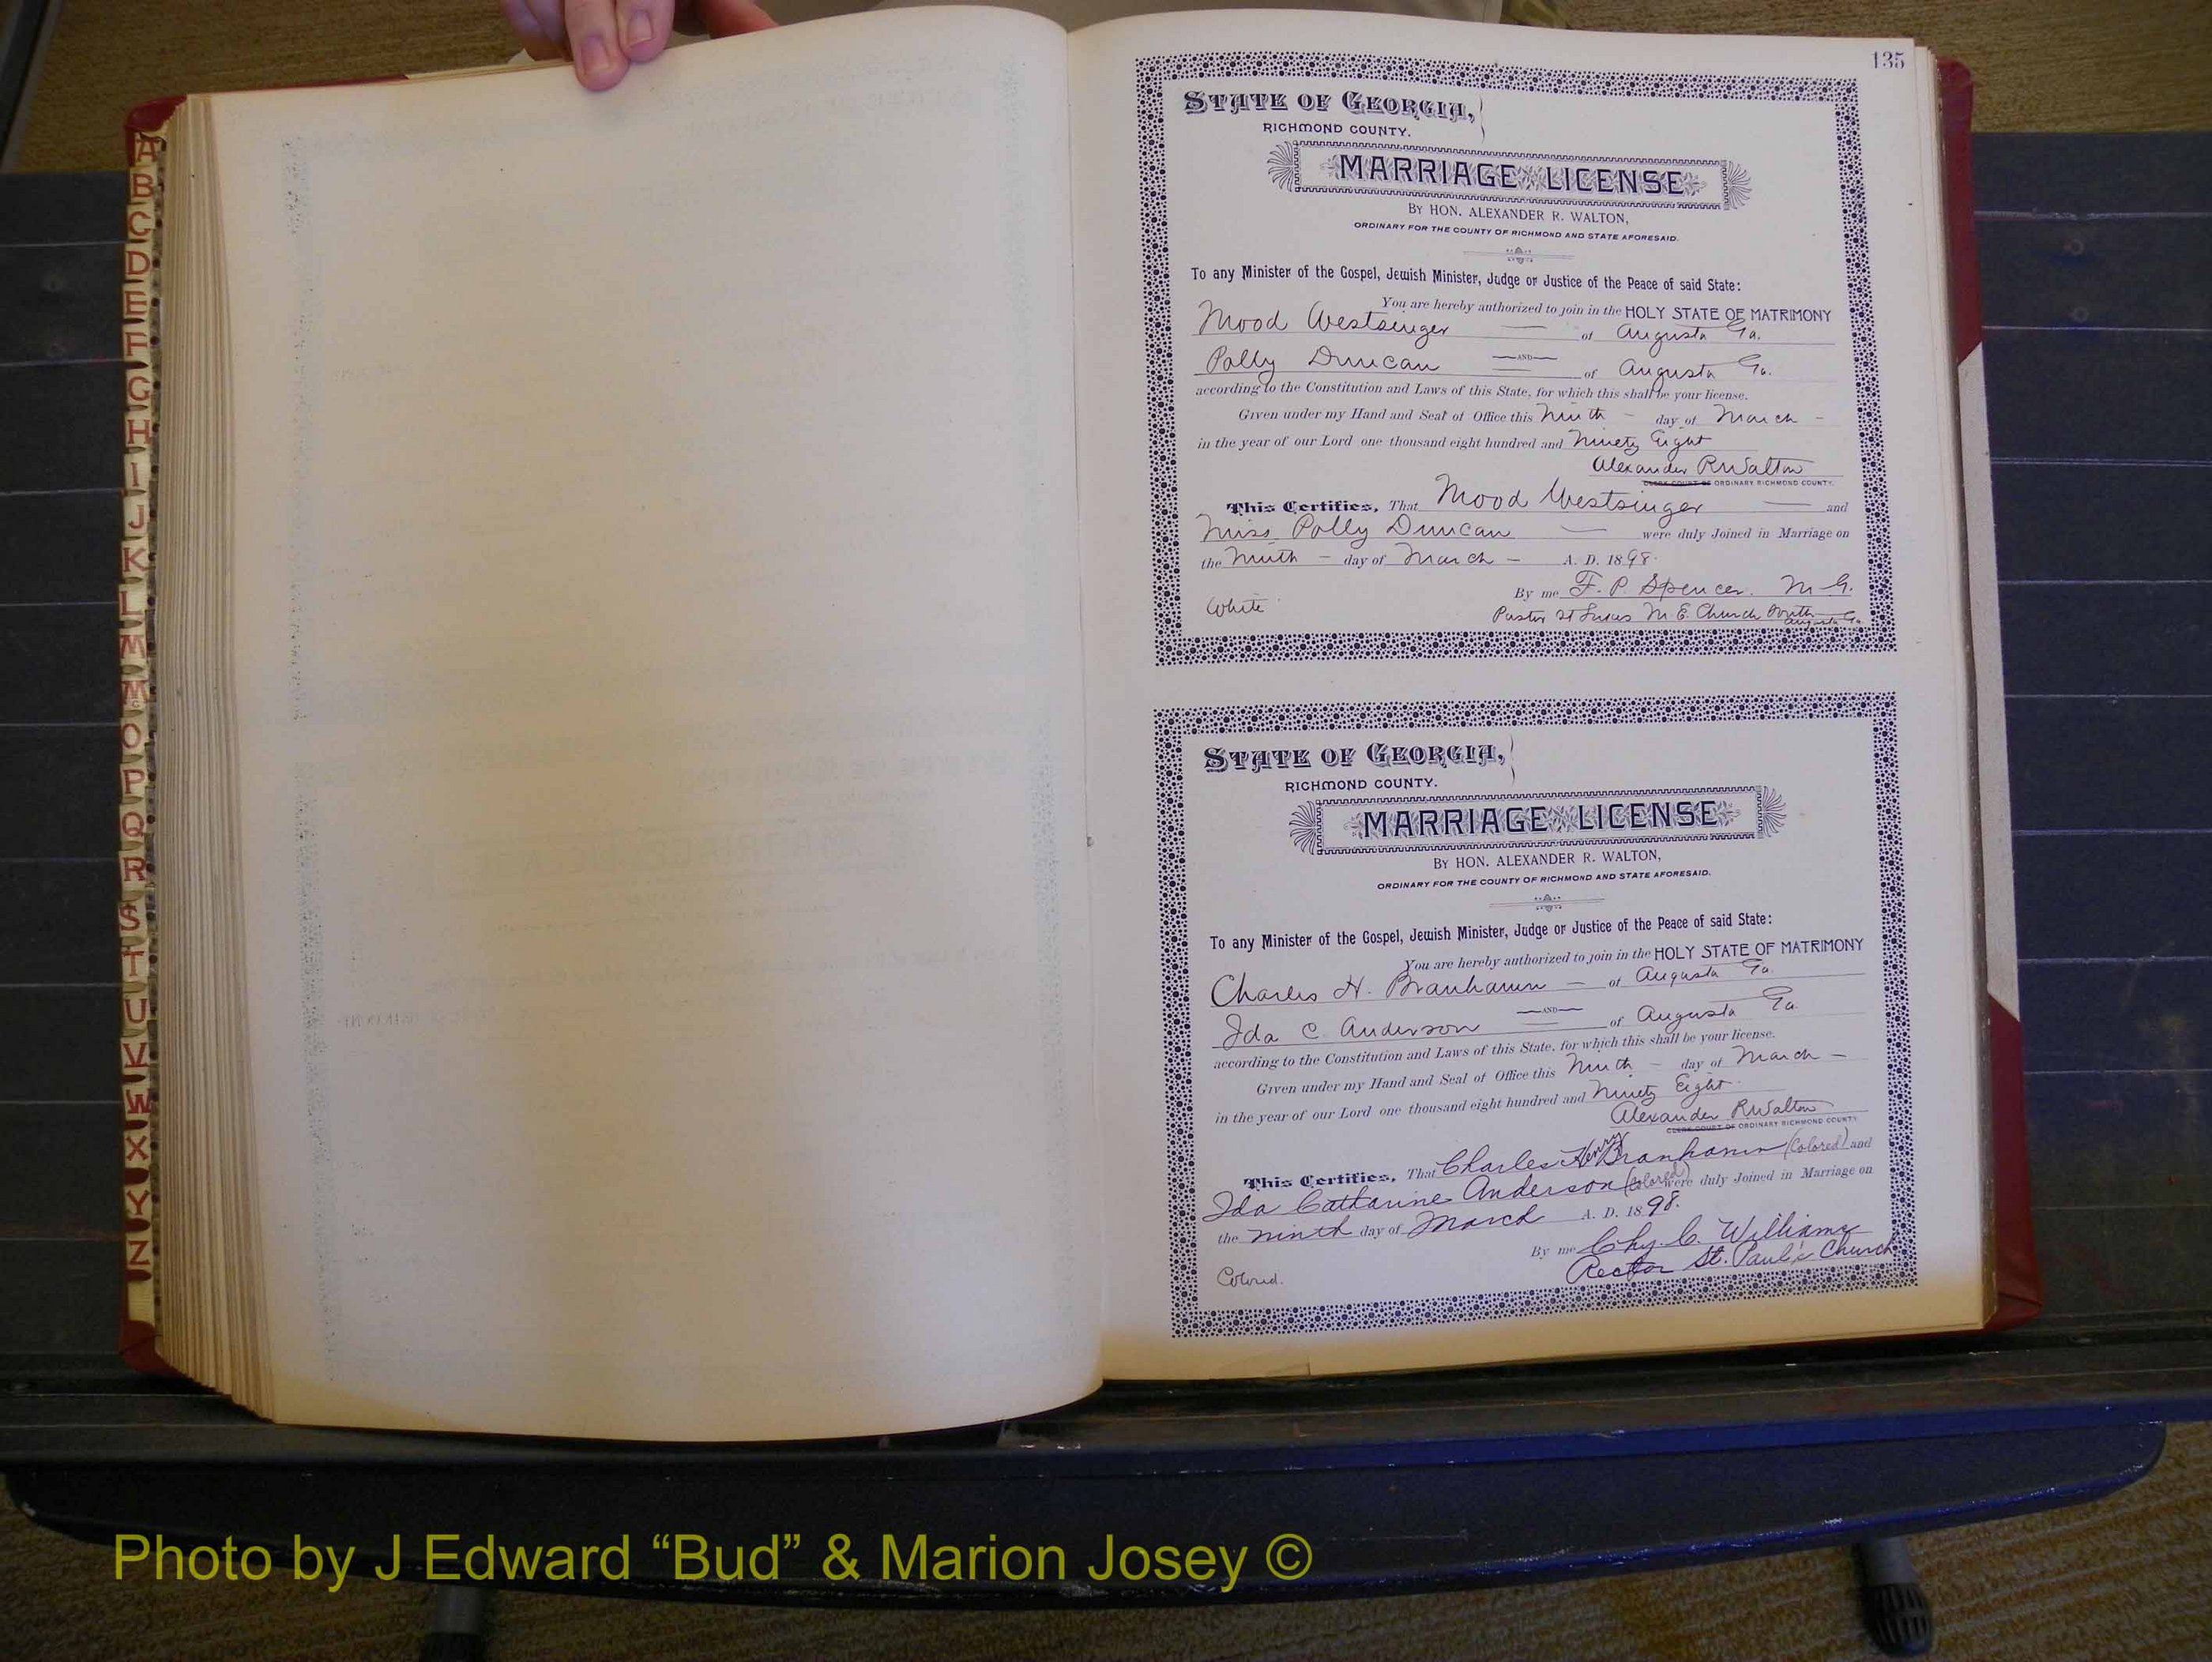 A
B
C
D
E
F
G
H
I
J
K
L
M
Mc
O
P
Q
R
S
T
U
V
W
X
Y
Z
135
STATE OF GEORGIA,
RICHMOND COUNTY.
MARRIAGE LICENSE
BY HON. ALEXANDER R. WALTON,
ORDINARY FOR THE COUNTY OF RICHMOND AND STATE AFORESAID.
To any Minister of the Gospel, Jewish Minister, Judge or Justice of the Peace of said State:
You are hereby authorized to join in the HOLY STATE OF MATRIMONY
Mood Westsinger — of Augusta Ga.
—AND—
Polly Duncan — of Augusta Ga.
according to the Constitution and Laws of this State, for which this shall be your license.
Given under my Hand and Seal of Office this Ninth — day of March —
in the year of our Lord one thousand eight hundred and Ninety Eight
Alexander R Walton
CLERK COURT OF ORDINARY RICHMOND COUNTY.
This Certifies, That Mood Westsinger — and
Miss Polly Duncan — were duly Joined in Marriage on
the Ninth — day of March — A. D. 1898.
By me F. P. Spencer. M. G.
White
Pastor St Lukes M E. Church South
Augusta Ga.
STATE OF GEORGIA,
RICHMOND COUNTY.
MARRIAGE LICENSE
BY HON. ALEXANDER R. WALTON,
ORDINARY FOR THE COUNTY OF RICHMOND AND STATE AFORESAID.
To any Minister of the Gospel, Jewish Minister, Judge or Justice of the Peace of said State:
You are hereby authorized to join in the HOLY STATE OF MATRIMONY
Charles H. Branhamn — of Augusta Ga.
—AND—
Ida C. Anderson — of Augusta Ga.
according to the Constitution and Laws of this State, for which this shall be your license.
Given under my Hand and Seal of Office this Ninth — day of March —
in the year of our Lord one thousand eight hundred and Ninety Eight.
Alexander R Walton
CLERK COURT OF ORDINARY RICHMOND COUNTY.
This Certifies, That Charles Henry Branhamn (Colored) and
Ida Catharine Anderson (Colored) were duly Joined in Marriage on
the ninth day of March A. D. 1898.
By me Chs. C. Williams
Rector St. Paul's Church
Colored.
Photo by J Edward “Bud” & Marion Josey ©